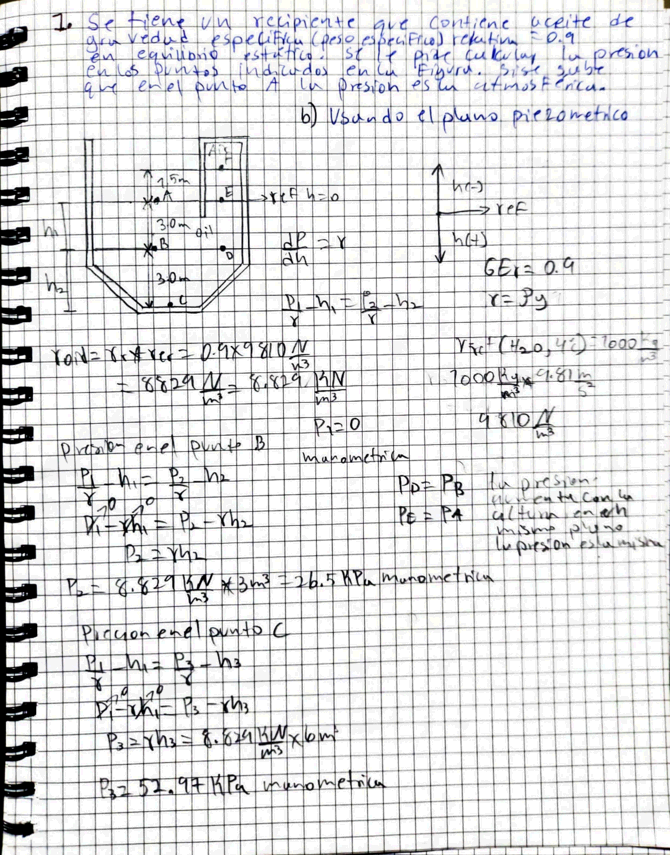 1. Se tiene un recipiente que contiene aceite de
gravedad especifica (peso especifico) relativa = 0.9
en equilibrio estatico. Se le pide calcular la presion
en los puntos indicados en la Figura. Dise sube
que en el punto A la presion es la atmosferica.
b) Usando el plano piezometrico
Air
F
1,5m
A
E
ref h=0
3.0m
oil
B
D
3.0m
C
h1
h2
h(-)
ref
h(+)
dP/dh = γ
GEr = 0.9
P1/γ - h1 = P2/γ - h2
γ = ρg
γoil = γr * γref = 0.9 x 9810 N/m3
γref (H2O, 4°c) = 1000 kg/m3
= 8829 N/m3 = 8.829 KN/m3
1000 Kg/m3 * 9.81 m/s2
P1 = 0
9810 N/m3
manometrica
Presion en el punto B
P1/γ - h1 = P2/γ - h2
PD = PB
la presion
aumenta con la
P1→0 - γh1→0 = P2 - γh2
PE = PA
altura en un
mismo plano
la presion es la misma
P2 = γh2
P2 = 8.829 KN/m3 * 3m3 = 26.5 KPa manometrica
Piccion en el punto C
P1/γ - h1 = P3/γ - h3
P1→0 - γh1→0 = P3 - γh3
P3 = γh3 = 8.829 KN/m3 x 6m
P3 = 52.97 KPa manometrica